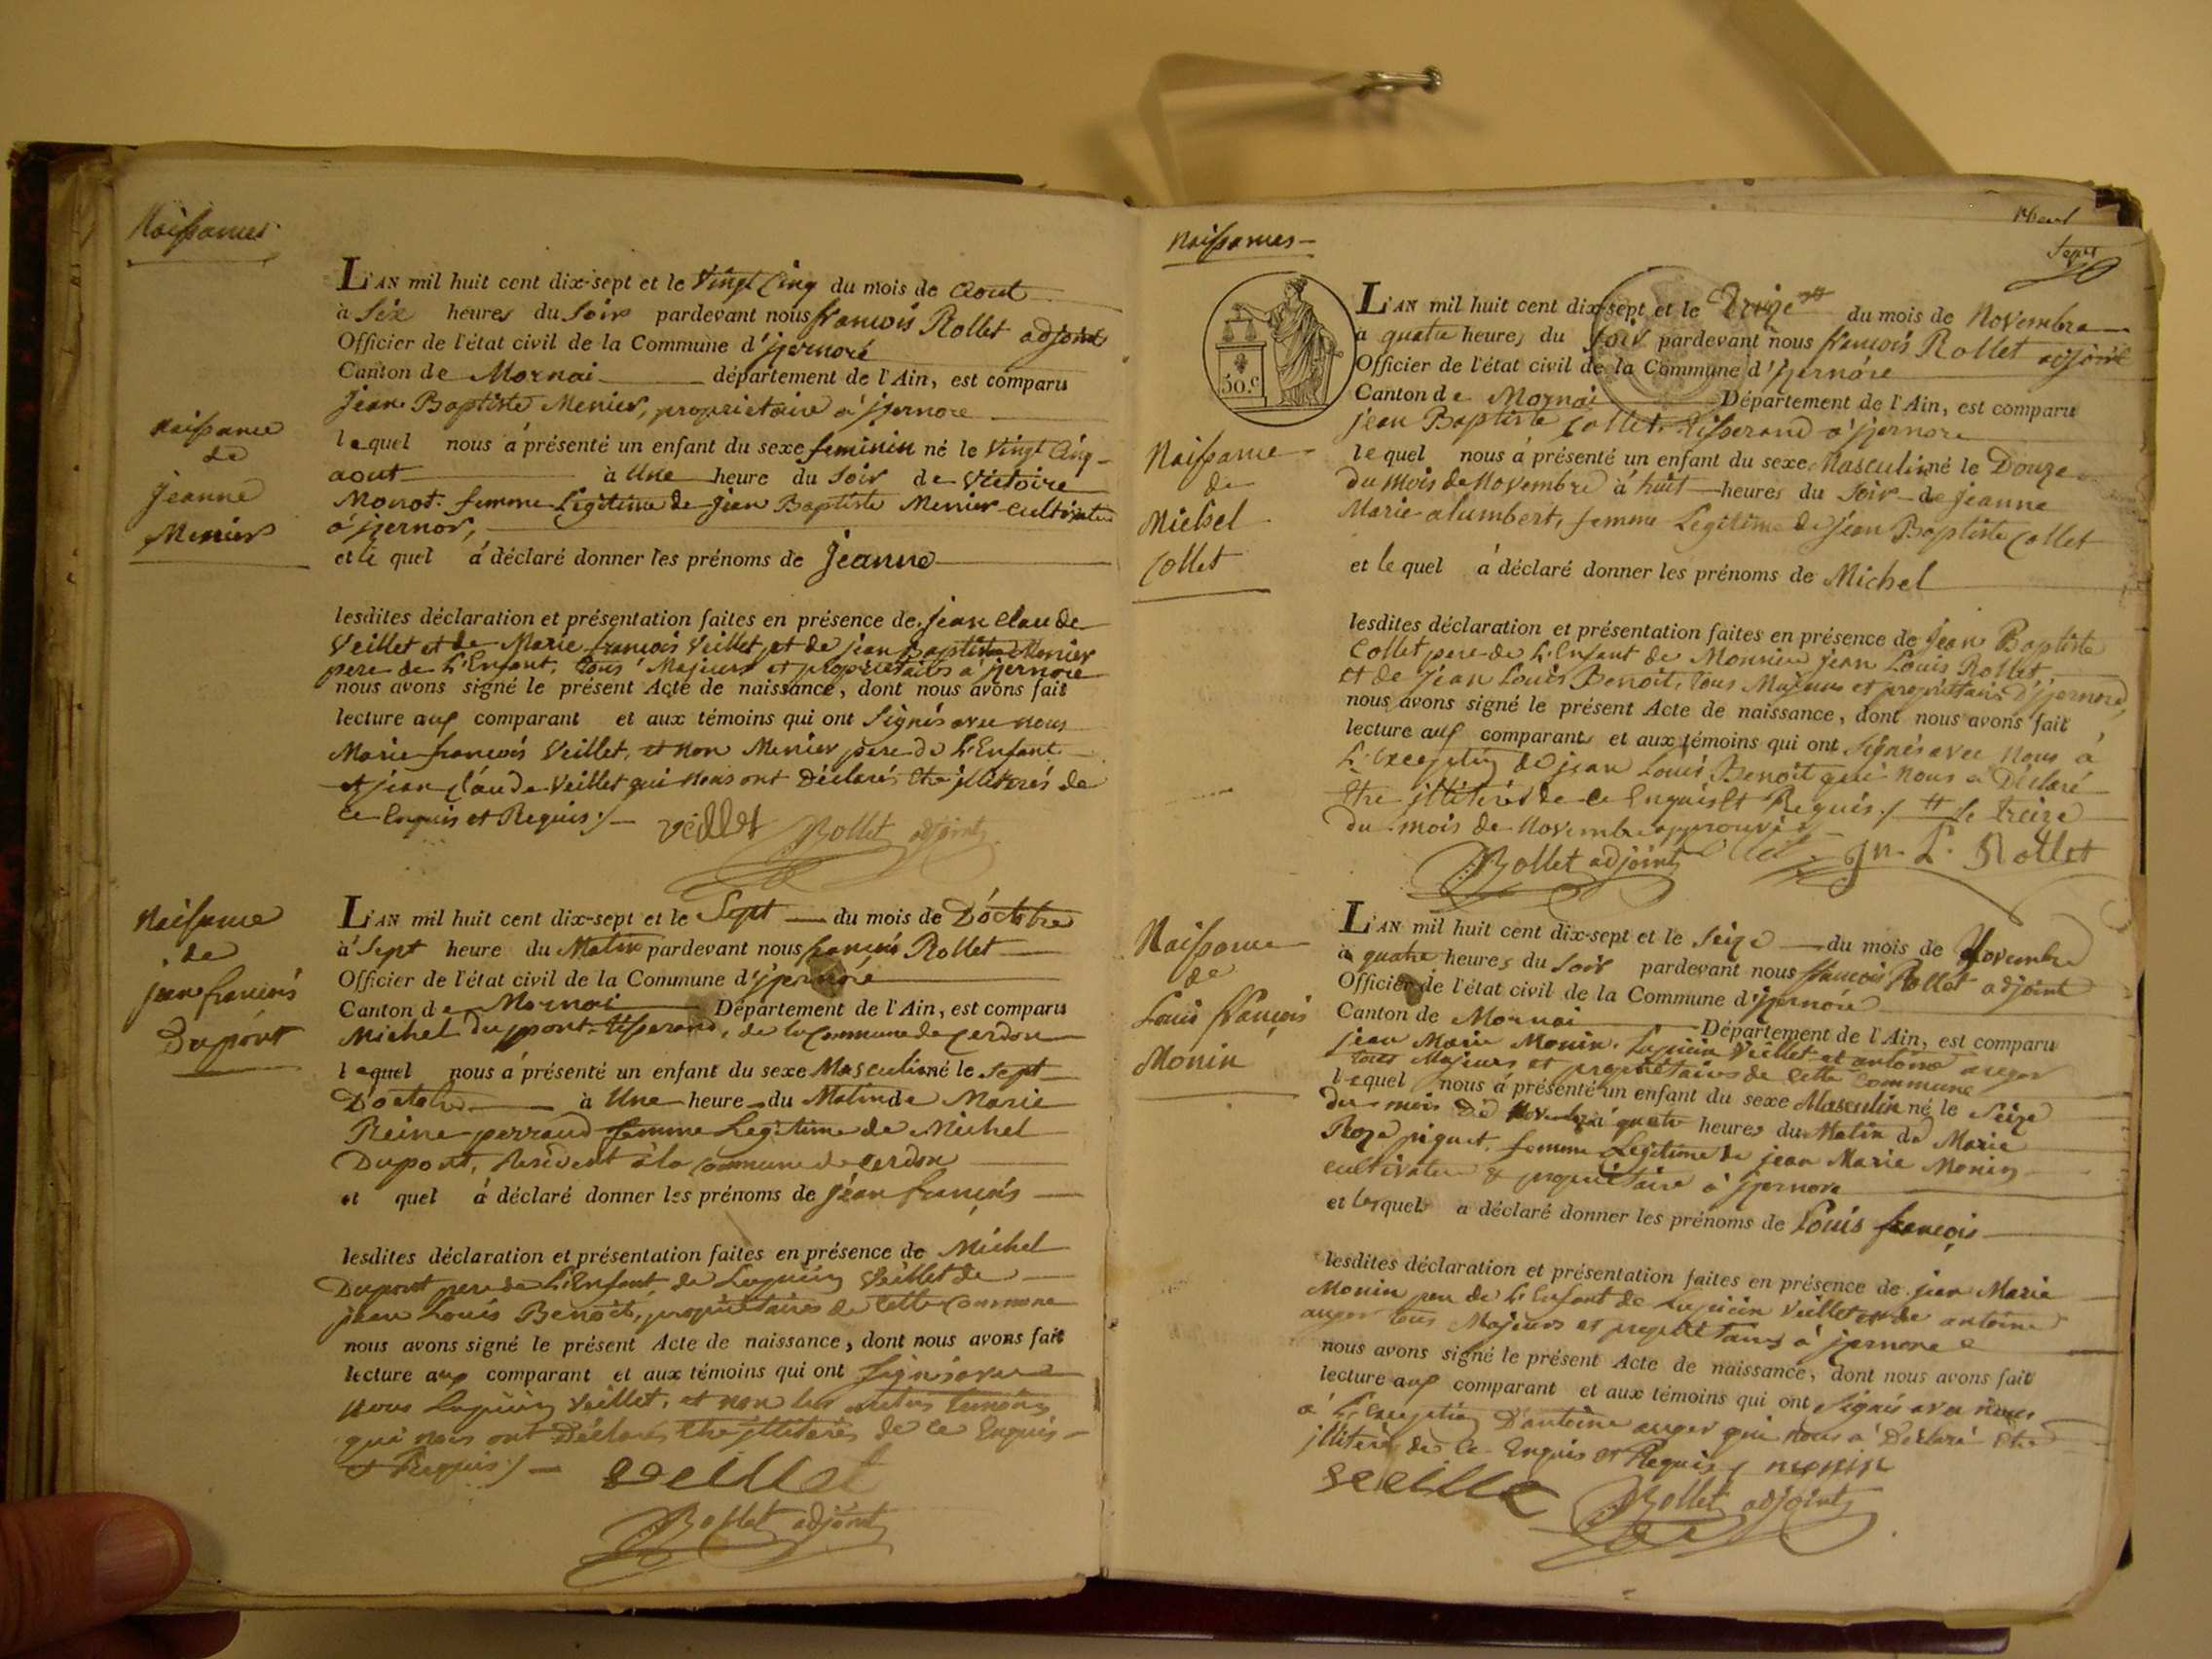 Naissances
Naissance
de
Jeanne
Menier
L'AN mil huit cent dix-sept et le Vingt Cinq du mois de Aout
à Six heures du Soir pardevant nous françois Rollet adjoint
Officier de l'état civil de la Commune d'jzernore
Canton de Mornai département de l'Ain, est comparu
Jean Baptiste Menier, proprietaire a jzernore
lequel nous à présenté un enfant du sexe feminin né le Vingt Cinq
aout à Une heure du Soir de Victoire
Monot femme Legitime de Jean Baptiste Menier cultivateur
a jzernor,
et le quel à déclaré donner les prénoms de Jeanne
lesdites déclaration et présentation faites en présence de jean claude
Veillet et de Marie françois Veillet et de jean Baptiste Menier
pere de L'Enfant, tous Majeurs et proprietaires a jzernore
nous avons signé le présent Acte de naissance, dont nous avons fait
lecture aux comparant et aux témoins qui ont Signés avec nous
Marie françois Veillet, et non Menier pere de L'Enfant
et jean claude Veillet qui nous ont Déclarés Etre jlliterés de
ce Enquis et Requis ./.
veillet Rollet adjoint
Naissance
de
jean françois
Dupont
L'AN mil huit cent dix-sept et le Sept du mois de D'octobre
à Sept heure du Matin pardevant nous françois Rollet
Officier de l'état civil de la Commune d'jzernore
Canton de Mornai Département de l'Ain, est comparu
Michel Duppont tisserand, de la Commune de Cerdon
lequel nous à présenté un enfant du sexe Masculin né le Sept
D'octobre à Une heure du Matin de Marie
Reine perraud femme Legitime de Michel
Dupont, Resident à la Commune de Cerdon
et quel à déclaré donner les prénoms de Jean françois
lesdites déclaration et présentation faites en présence de Michel
Dupont pere de L'Enfant de Lupicin Veillet de
jean Louis Benoit, proprietaires de Cette Commune
nous avons signé le présent Acte de naissance, dont nous avons fait
lecture aux comparant et aux témoins qui ont Signés avec
nous Lupicin Veillet, et non les autres temoins
qui nous ont Déclarés Etre jlliterés de ce Enquis
et Requis ./.
veillet
Rollet adjoint
Naissances
Sept
50.c
Naissance
de
Michel
Collet
L'AN mil huit cent dix-sept et le Treize du mois de Novembre
à quatre heures du Soir pardevant nous françois Rollet adjoint
Officier de l'état civil de la Commune d'jzernore
Canton de Mornai Département de l'Ain, est comparu
jean Baptiste Collet, tisserand a jzernore
lequel nous à présenté un enfant du sexe Masculin né le Douze
du mois de Novembre à huit heures du Soir de jeanne
Marie alumbert, femme Legitime de jean Baptiste Collet
et le quel à déclaré donner les prénoms de Michel
lesdites déclaration et présentation faites en présence de Jean Baptiste
Collet pere de L'Enfant de Monsieur jean Louis Rollet
et de jean Louis Benoit, tous Majeurs et proprietaires D'jzernore,
nous avons signé le présent Acte de naissance, dont nous avons fait
lecture aux comparants et aux témoins qui ont Signés avec nous à
L'Exception de jean Louis Benoit qui nous a Déclaré
Etre jlliteré de ce Enquis et Requis ./. le treize
du mois de Novembre approuvés
Rollet adjoint Jn. L. Rollet
Naissance
de
Louis françois
Monin
L'AN mil huit cent dix-sept et le Seize du mois de Novembre
à quatre heures du Soir pardevant nous françois Rollet adjoint
Officier de l'état civil de la Commune d'jzernore
Canton de Mornai Département de l'Ain, est comparu
jean Marie Monin, Lupicin Veillet et antoine auger
tous Majeurs et proprietaires de Cette Commune
lequel nous à présenté un enfant du sexe Masculin né le Seize
du mois de Novembre à quatre heures du Matin de Marie
Roze piquet, femme Legitime de jean Marie Monin
cultivateur & proprietaire a jzernore
et lesquels a déclaré donner les prénoms de Louis françois
lesdites déclaration et présentation faites en présence de jean Marie
Monin pere de L'Enfant de Lupicin Veillet et de antoine
auger tous Majeurs et proprietaires à jzernore
nous avons signé le présent Acte de naissance, dont nous avons fait
lecture aux comparant et aux témoins qui ont Signés avec nous
à L'Exception D'antoine auger qui nous a Déclaré Etre
jlliteré de Ce Enquis et Requis monin
veillet
Rollet adjoint